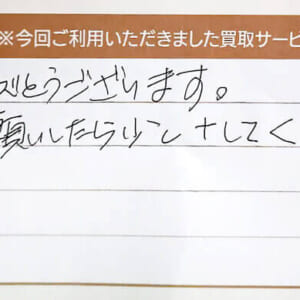 ※今回ご利用いただきました買取サービ
がとうございます。
願いしたら少し+してく